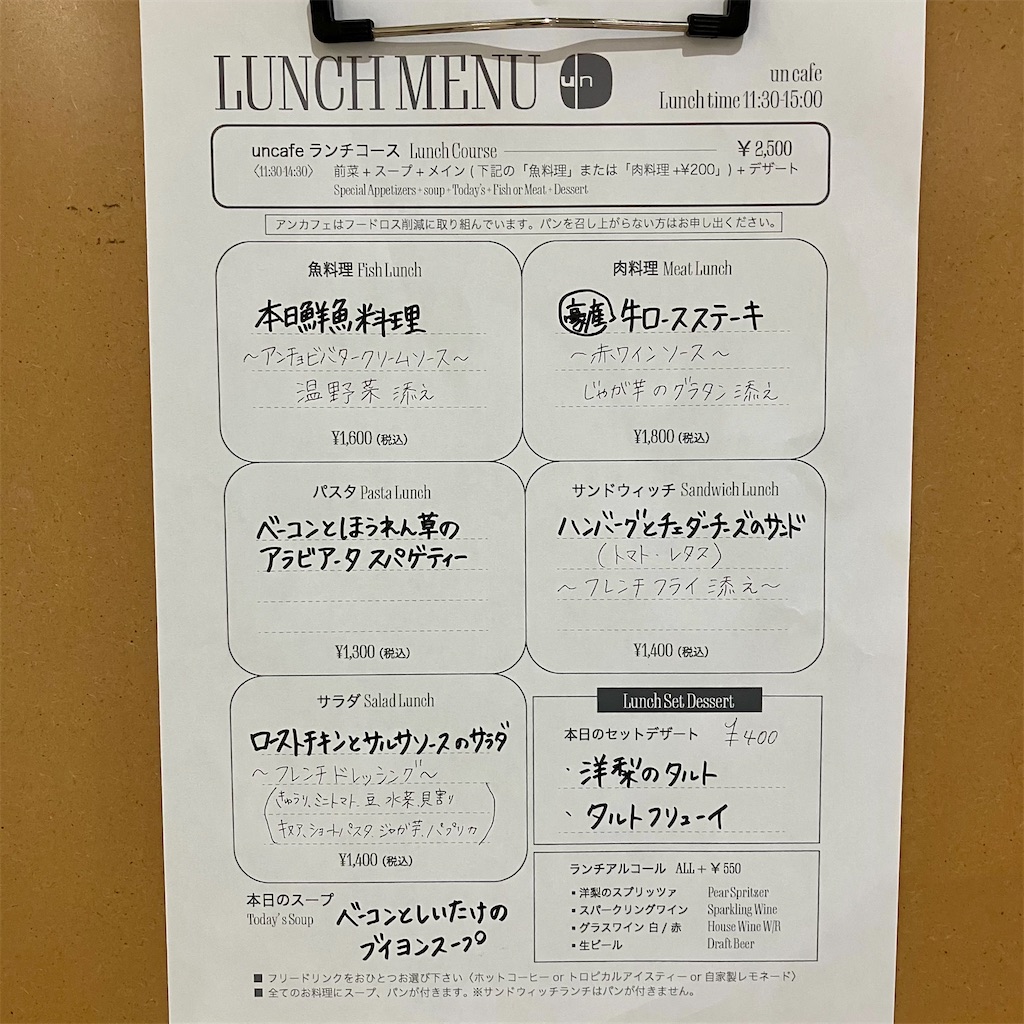 LUNCH MENU
un
un cafe
Lunch time 11:30-15:00
uncafe ランチコース Lunch Course ¥2,500
〈11:30-14:30〉 前菜+スープ+メイン(下記の「魚料理」または「肉料理+¥200」)+デザート
Special Appetizers + soup + Today's + Fish or Meat + Dessert
アンカフェはフードロス削減に取り組んでいます。パンを召し上がらない方はお申し出ください。
魚料理 Fish Lunch
本日鮮魚料理
〜アンチョビバタークリームソース〜
温野菜 添え
¥1,600(税込)
肉料理 Meat Lunch
豪産 牛ロースステーキ
〜赤ワインソース〜
じゃが芋のグラタン添え
¥1,800(税込)
パスタ Pasta Lunch
ベーコンとほうれん草の
アラビアータ スパゲティー
¥1,300(税込)
サンドウィッチ Sandwich Lunch
ハンバーグとチェダーチーズのサンド
(トマト・レタス)
〜フレンチフライ添え〜
¥1,400(税込)
サラダ Salad Lunch
ローストチキンとサルサソースのサラダ
〜フレンチドレッシング〜
(きゅうり、ミニトマト、豆、水菜、貝割り
キヌア、ショートパスタ、じゃが芋、パプリカ)
¥1,400(税込)
Lunch Set Dessert
本日のセットデザート ¥400
・洋梨のタルト
・タルトフリューイ
ランチアルコール ALL+¥550
▪洋梨のスプリッツァ Pear Spritzer
▪スパークリングワイン Sparkling Wine
▪グラスワイン 白/赤 House Wine W/R
▪生ビール Draft Beer
本日のスープ
Today's Soup
ベーコンとしいたけの
ブイヨンスープ
■ フリードリンクをおひとつお選び下さい〈ホットコーヒー or トロピカルアイスティー or 自家製レモネード〉
■ 全てのお料理にスープ、パンが付きます。※サンドウィッチランチはパンが付きません。